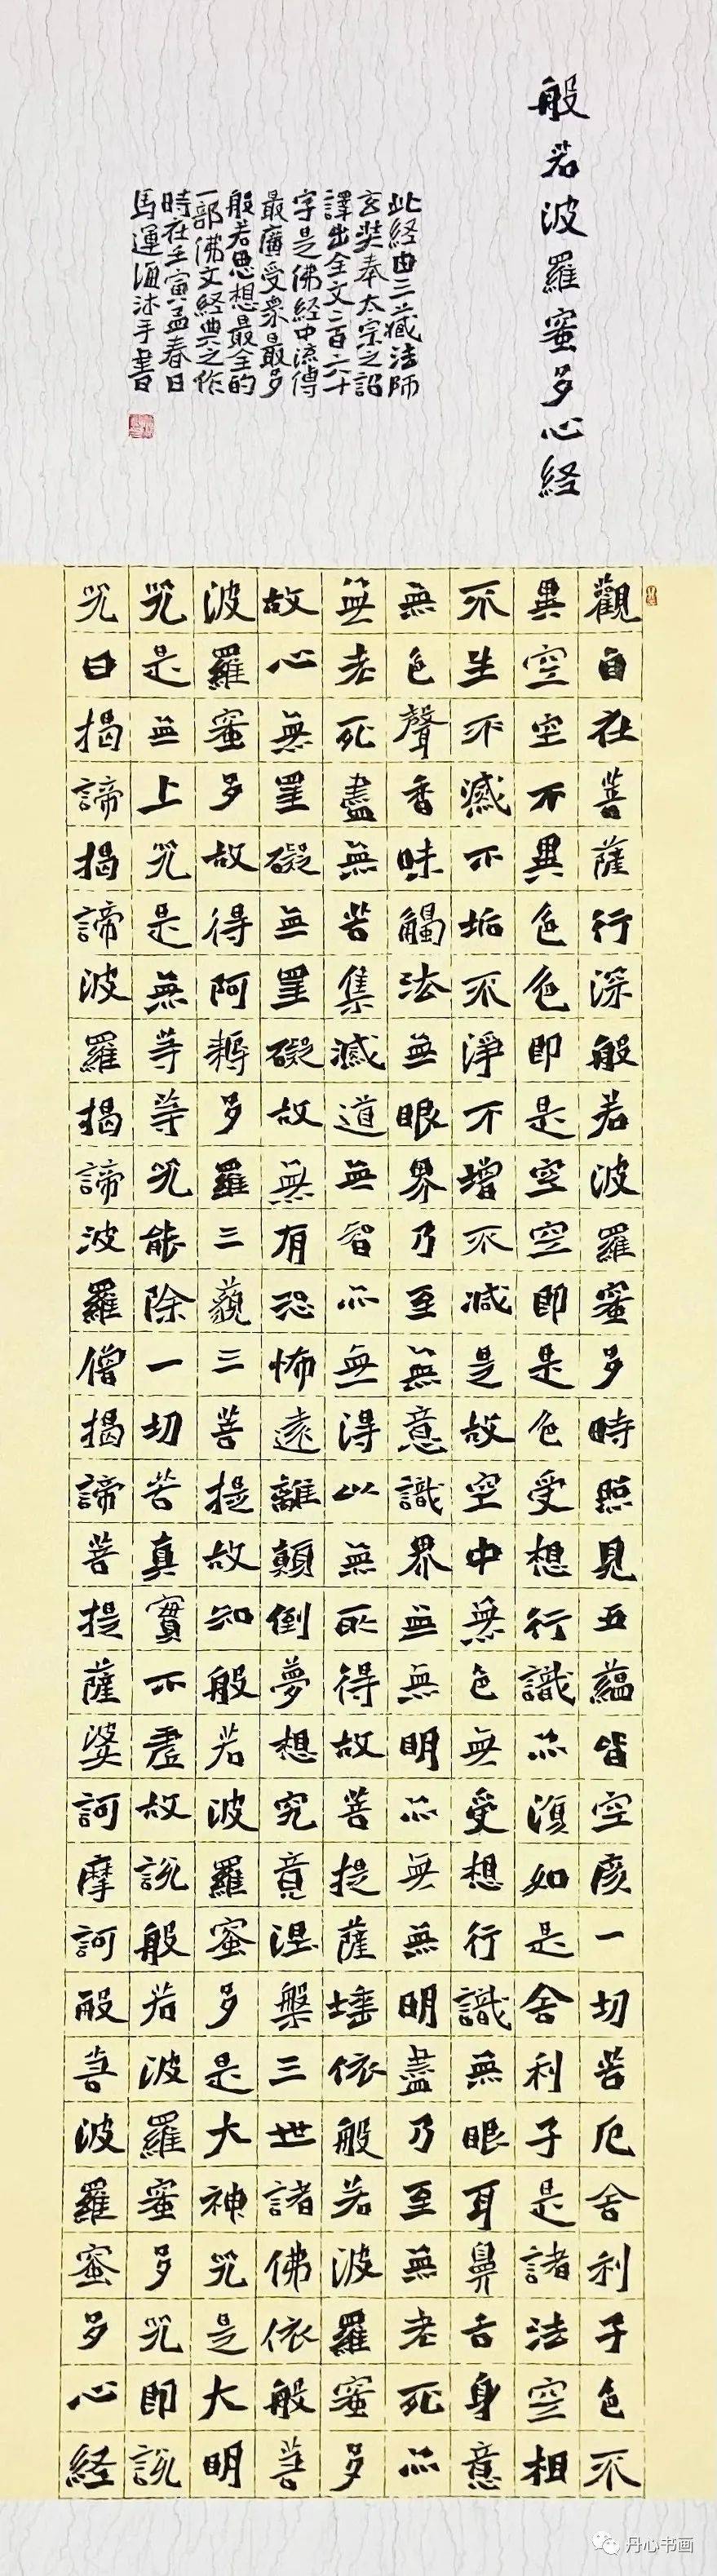 般若波羅蜜多心経
此経由三藏法師
玄奘奉太宗之詔
譯出全文二百六十
字是佛経中流傳
最廣受衆最多
般若思想最全的
一部佛文経典之作
時在壬寅孟春日
馬運海沐手書
觀自在菩薩行深般若波羅蜜多時照見五蘊皆空度一切苦厄舍利子色不
異空空不異色色即是空空即是色受想行識亦復如是舍利子是諸法空相
不生不滅不垢不淨不增不減是故空中無色無受想行識無眼耳鼻舌身意
無色聲香味觸法無眼界乃至無意識界無無明亦無無明盡乃至無老死亦
無老死盡無苦集滅道無智亦無得以無所得故菩提薩埵依般若波羅蜜多
故心無罣礙無罣礙故無有恐怖遠離顛倒夢想究竟涅槃三世諸佛依般若
波羅蜜多故得阿耨多羅三藐三菩提故知般若波羅蜜多是大神咒是大明
咒是無上咒是無等等咒能除一切苦真實不虛故說般若波羅蜜多咒即說
咒曰揭諦揭諦波羅揭諦波羅僧揭諦菩提薩婆訶摩訶般若波羅蜜多心経
丹心书画